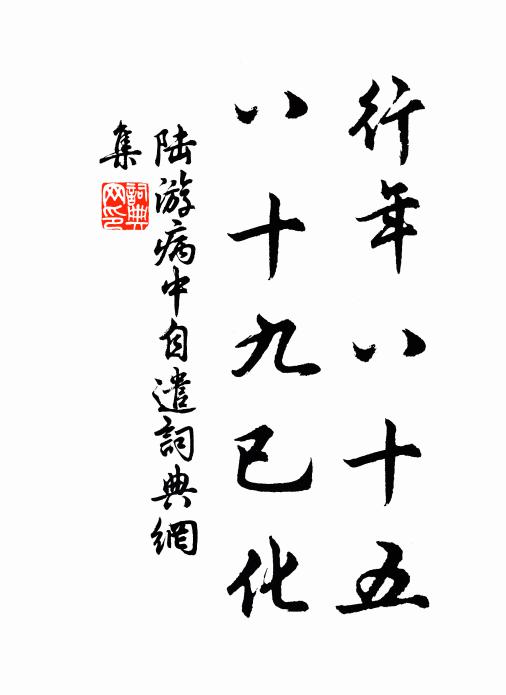 行年八十五
八十九已化
陆游病中自遣詞典網
集
詞典
网印